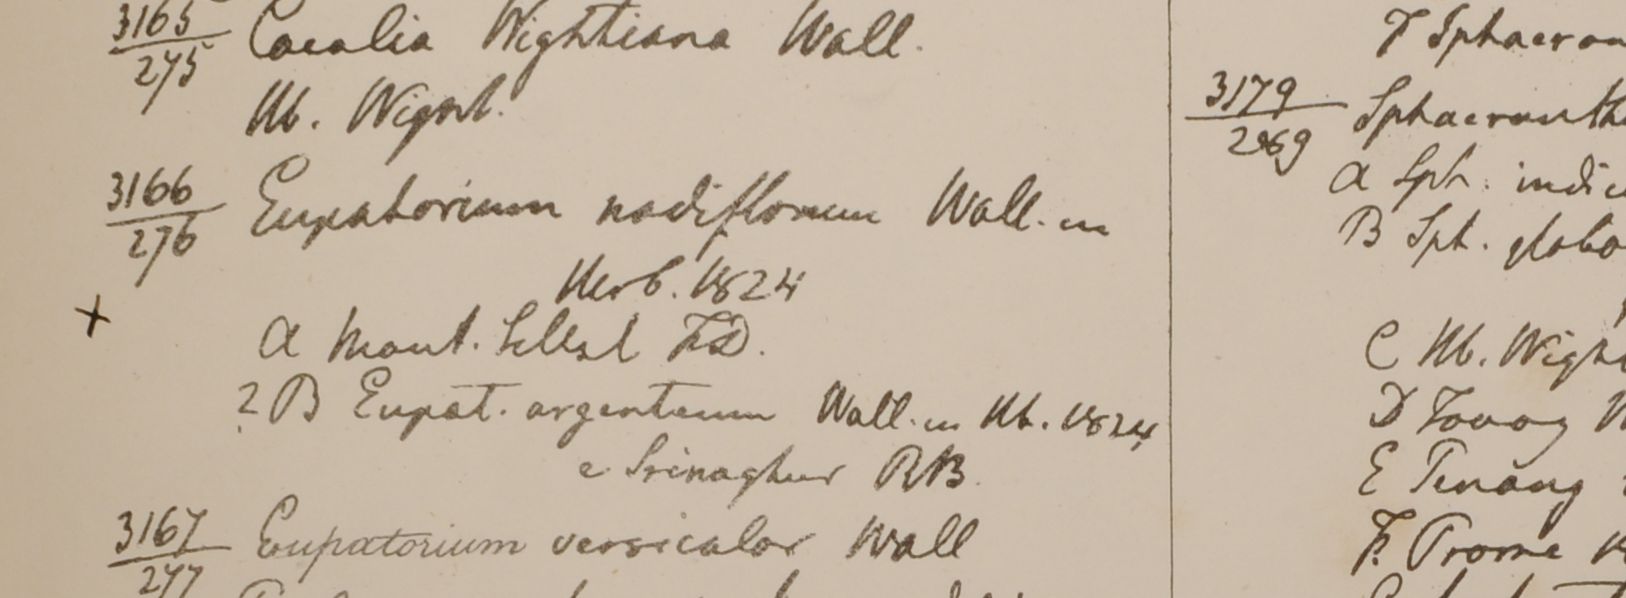 3165
275
Cacalia Wightiana Wall.
Hb. Wight.
3166
276
Eupatorium nodiflorum Wall. in
Herb. 1824
+
a Mont. Sillet FD.
? B Eupat. argenteum Wall. in Hb. 1824
e Srinaghur RB.
3167
277
Eupatorium versicolor Wall
3179
2969
Sphaeranth
a Sph. indic
B Sph. globo
C Hb. Wigh
D Tavoy
E Penang
F. Prome